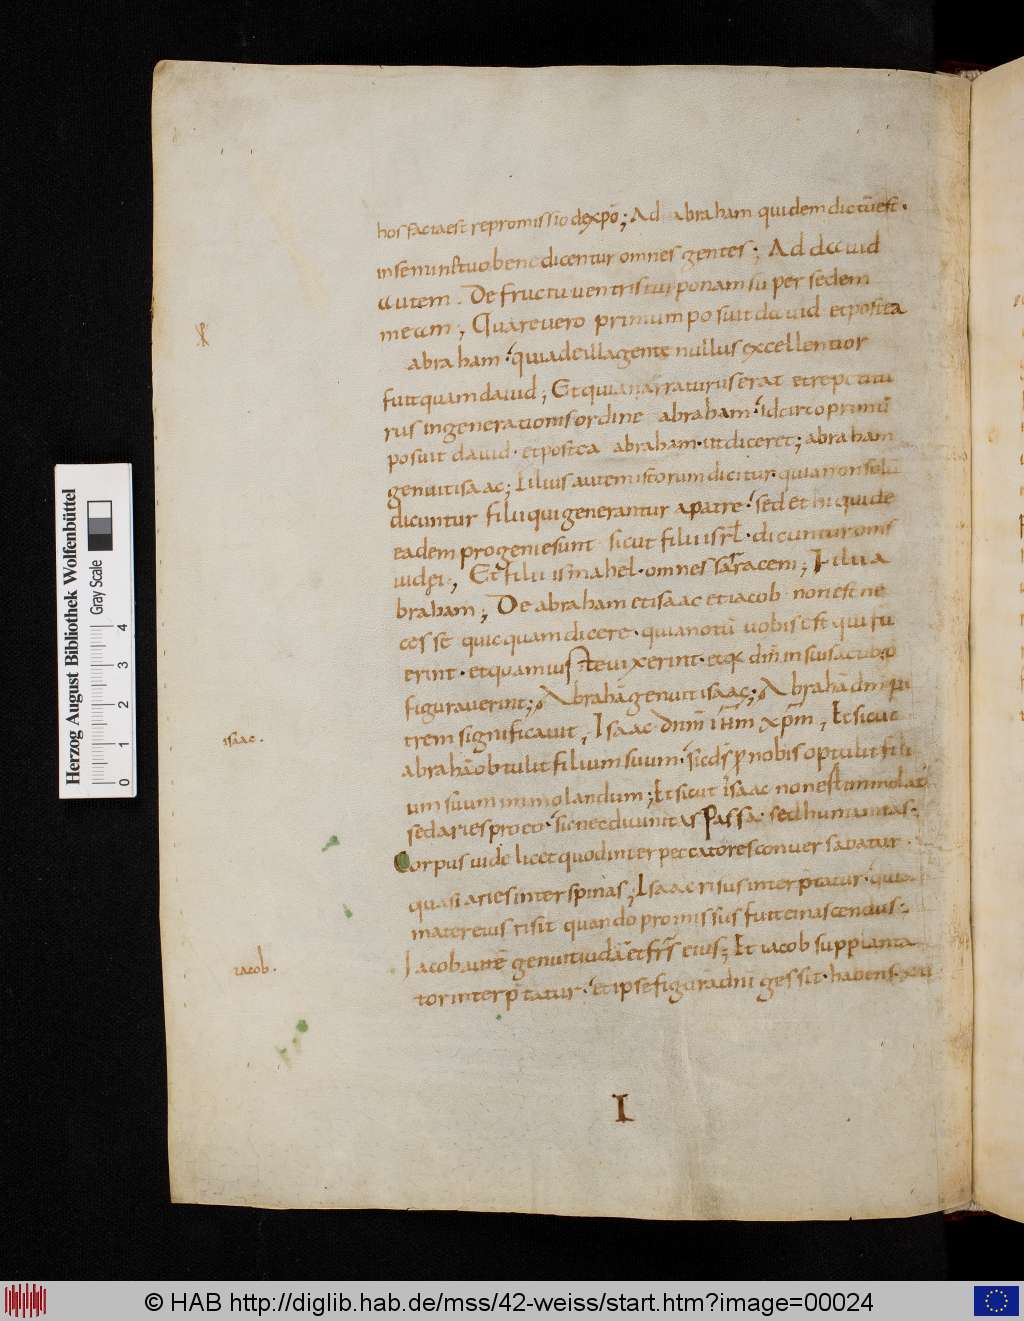 hos facta est repromissio de xpō; Ad abraham quidem dictū est.
in semine tuo benedicentur omnes gentes; Ad dauid
autem. De fructu uentris tui ponam super sedem
meam; Quare uero primum posuit dauid et postea
abraham; quia de illa gente nullus excellentior
fuit quam dauid; Et quia narraturus erat et repetitu
rus in generationis ordine abraham; idcirco primū
posuit dauid. et postea abraham. ut diceret; abraham
genuit isaac; Filius autem istorum dicitur. quia non solū
dicuntur filii qui generantur a patre; sed et hi qui de
eadem progenie sunt sicut filii isrl. dicuntur omnes
iudei; Et filii ismahel. omnes sarraceni; Filii a
braham; De abraham et isaac et iacob non est ne
cesse quicquam dicere. quia notū uobis est qui fu
erint. et quam iuste uixerint. et qd dnm in suis actib; p
figurauerint; Abrahā genuit isaac; Abrahā dm pa
trem significauit, Isaac dnm ihm xpm, Et sicut
abrahā obtulit filium suum. sic ds p nobis optulit fili
um suum immolandum; Et sicut isaac non est immolat'
sed aries pro eo; sic nec diuinitas Passa. sed humanitas.
Corpus uidelicet quod inter peccatores conuersabatur.
quasi aries inter spinas; Isaac risus interptatur. quia
mater eius risit quando promissus fuit ei nascendus.
Iacob autē genuit iudā et frs eius; Et iacob supplanta
tor interptatur. et ipse figurā dni gessit. habens xii
isaac.
iacob.
I
Herzog August Bibliothek Wolfenbüttel
Gray Scale
0 1 2 3 4
© HAB http://diglib.hab.de/mss/42-weiss/start.htm?image=00024